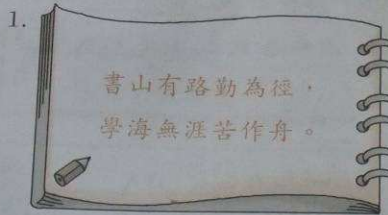 1.
書山有路勤為徑，
學海無涯苦作舟。